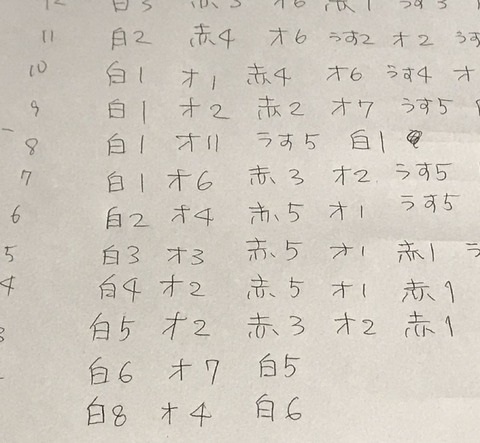 12 白3 赤3 オ6 赤1 うす3
11 白2 赤4 オ6 うす2 オ2 うす
10 白1 オ1 赤4 オ6 うす4 オ
9 白1 オ2 赤2 オ7 うす5
8 白1 オ11 うす5 白1
7 白1 オ6 赤3 オ2 うす5
6 白2 オ4 赤5 オ1 うす5
5 白3 オ3 赤5 オ1 赤1 う
4 白4 オ2 赤5 オ1 赤1
3 白5 オ2 赤3 オ2 赤1
白6 オ7 白5
白8 オ4 白6